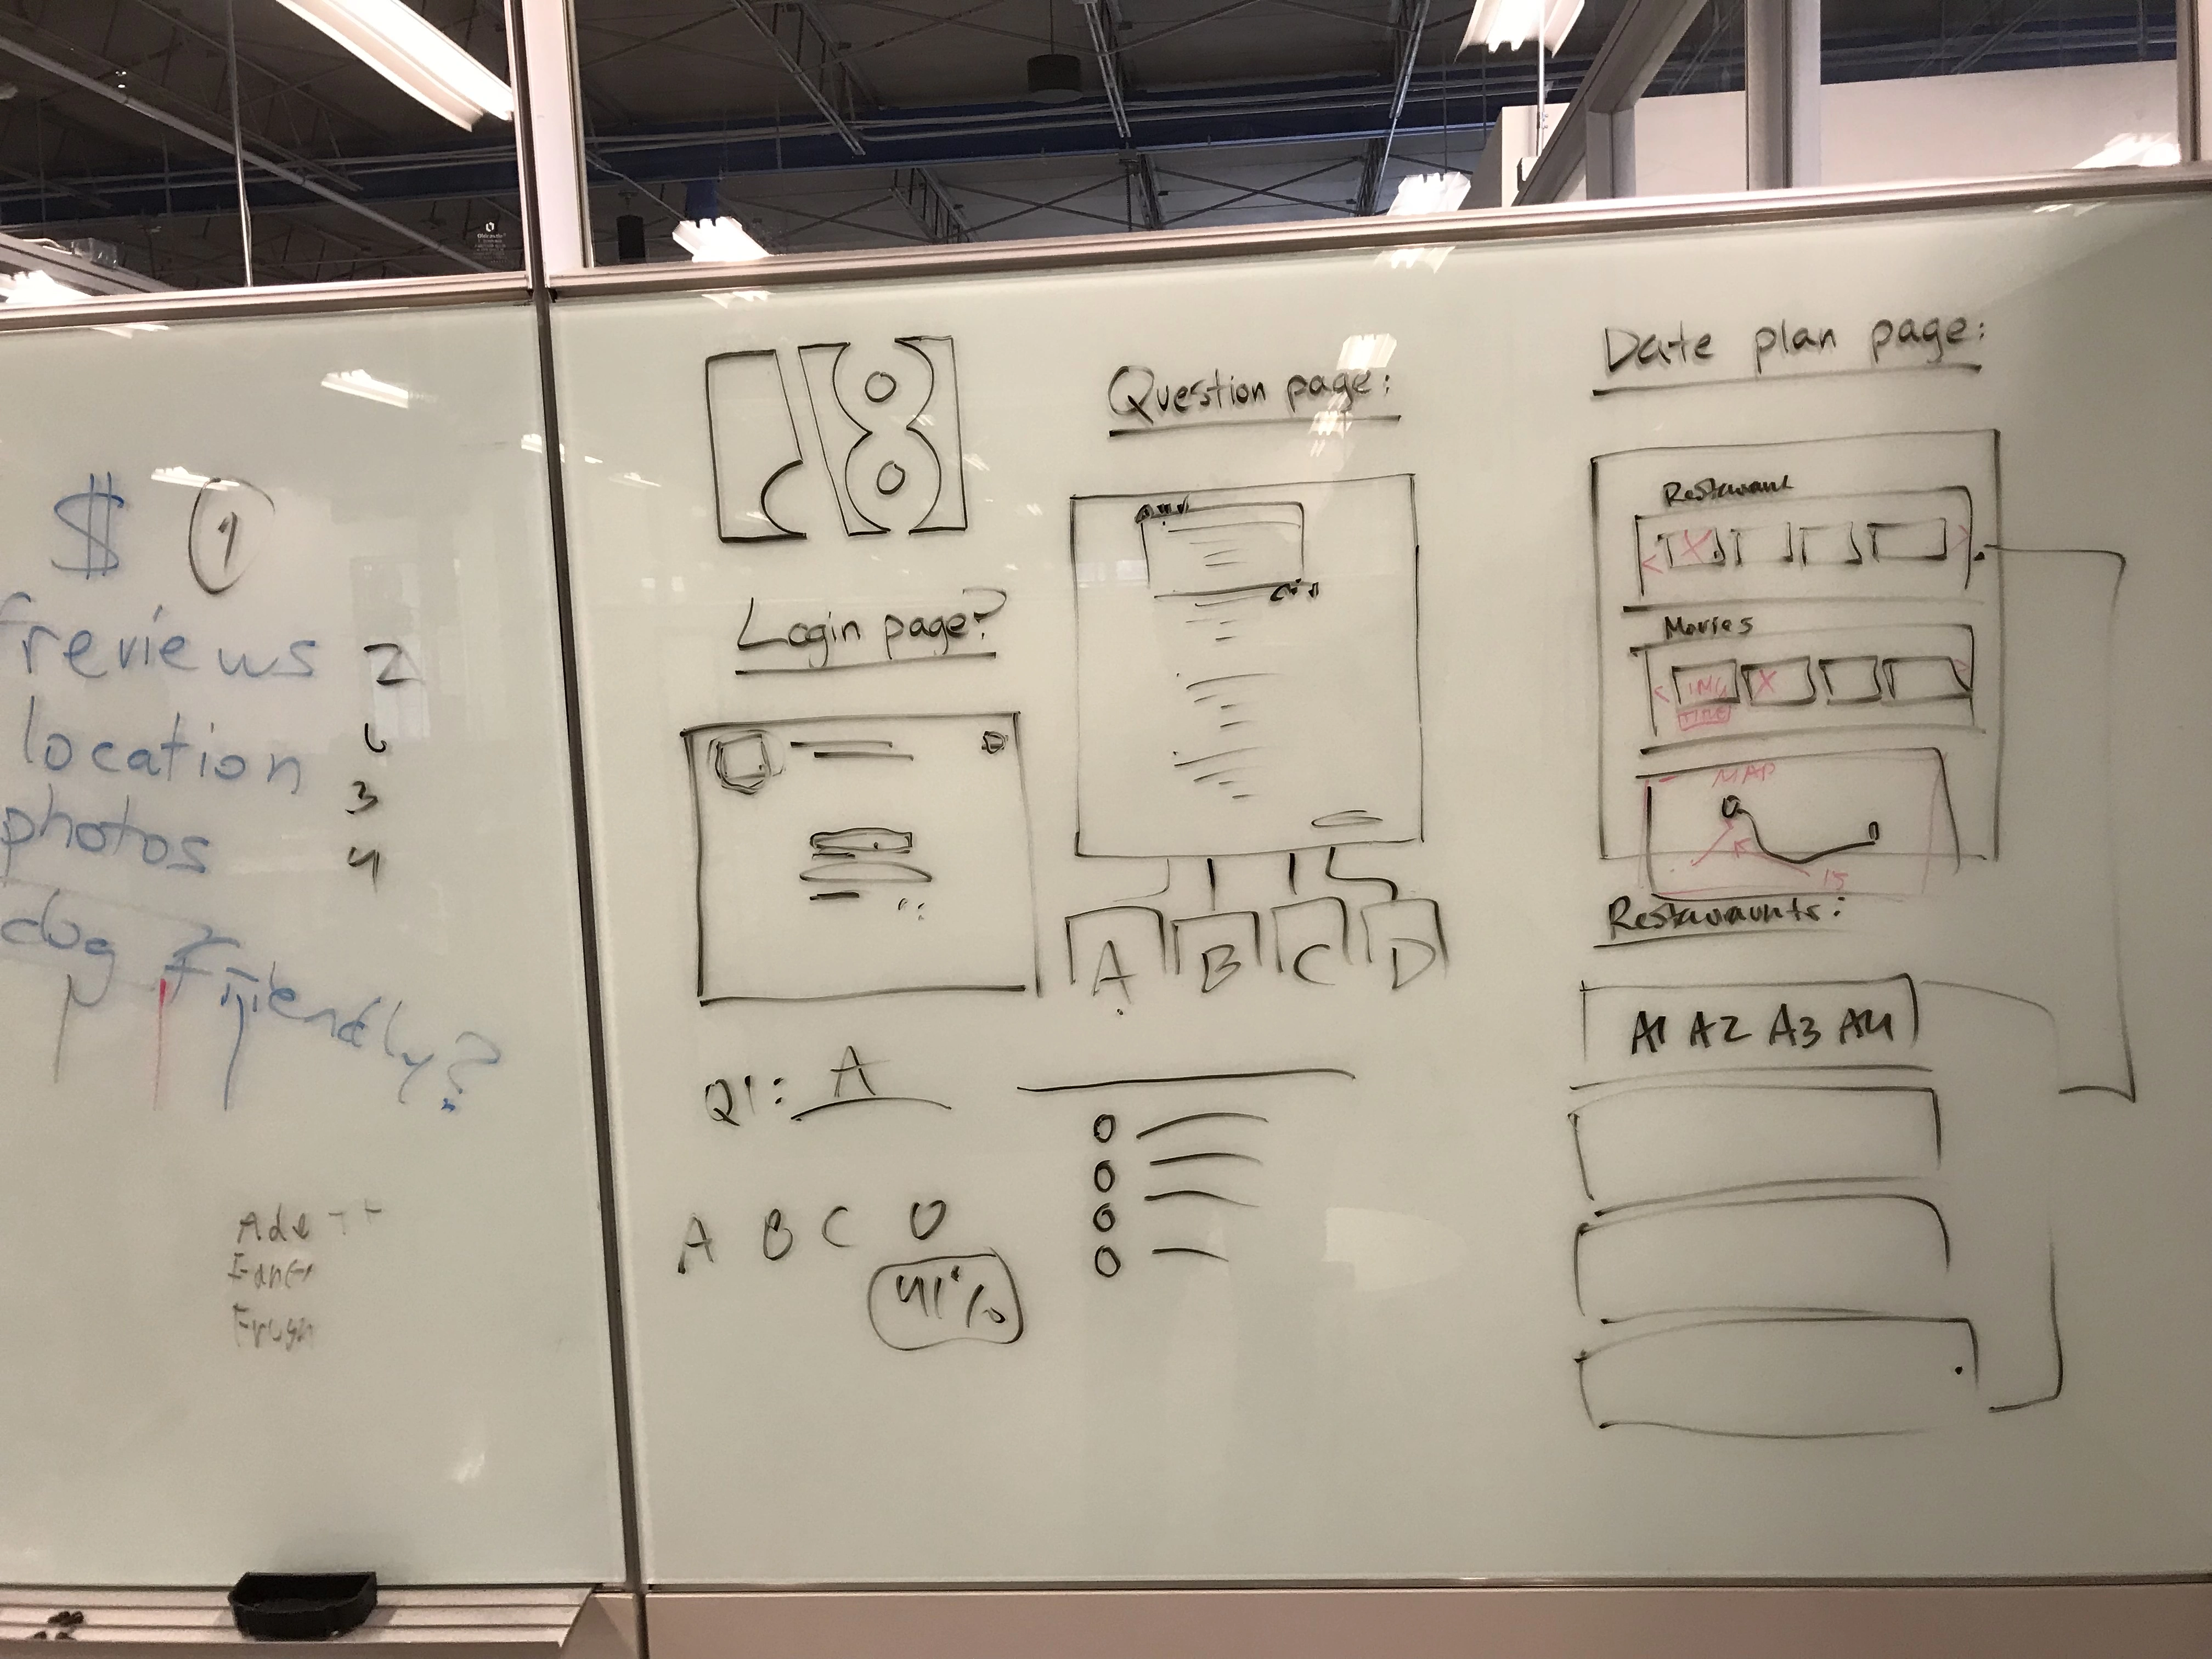 $ 1
reviews 2
location 6
3
photos
4
dog friendly?
Login page?
Q1: A
A B C D
41%
Question page:
A B C D
Date plan page:
Restaurant
X
Movies
IMG X
TITLE
MAP
15
Restauraunts:
A1 A2 A3 A4